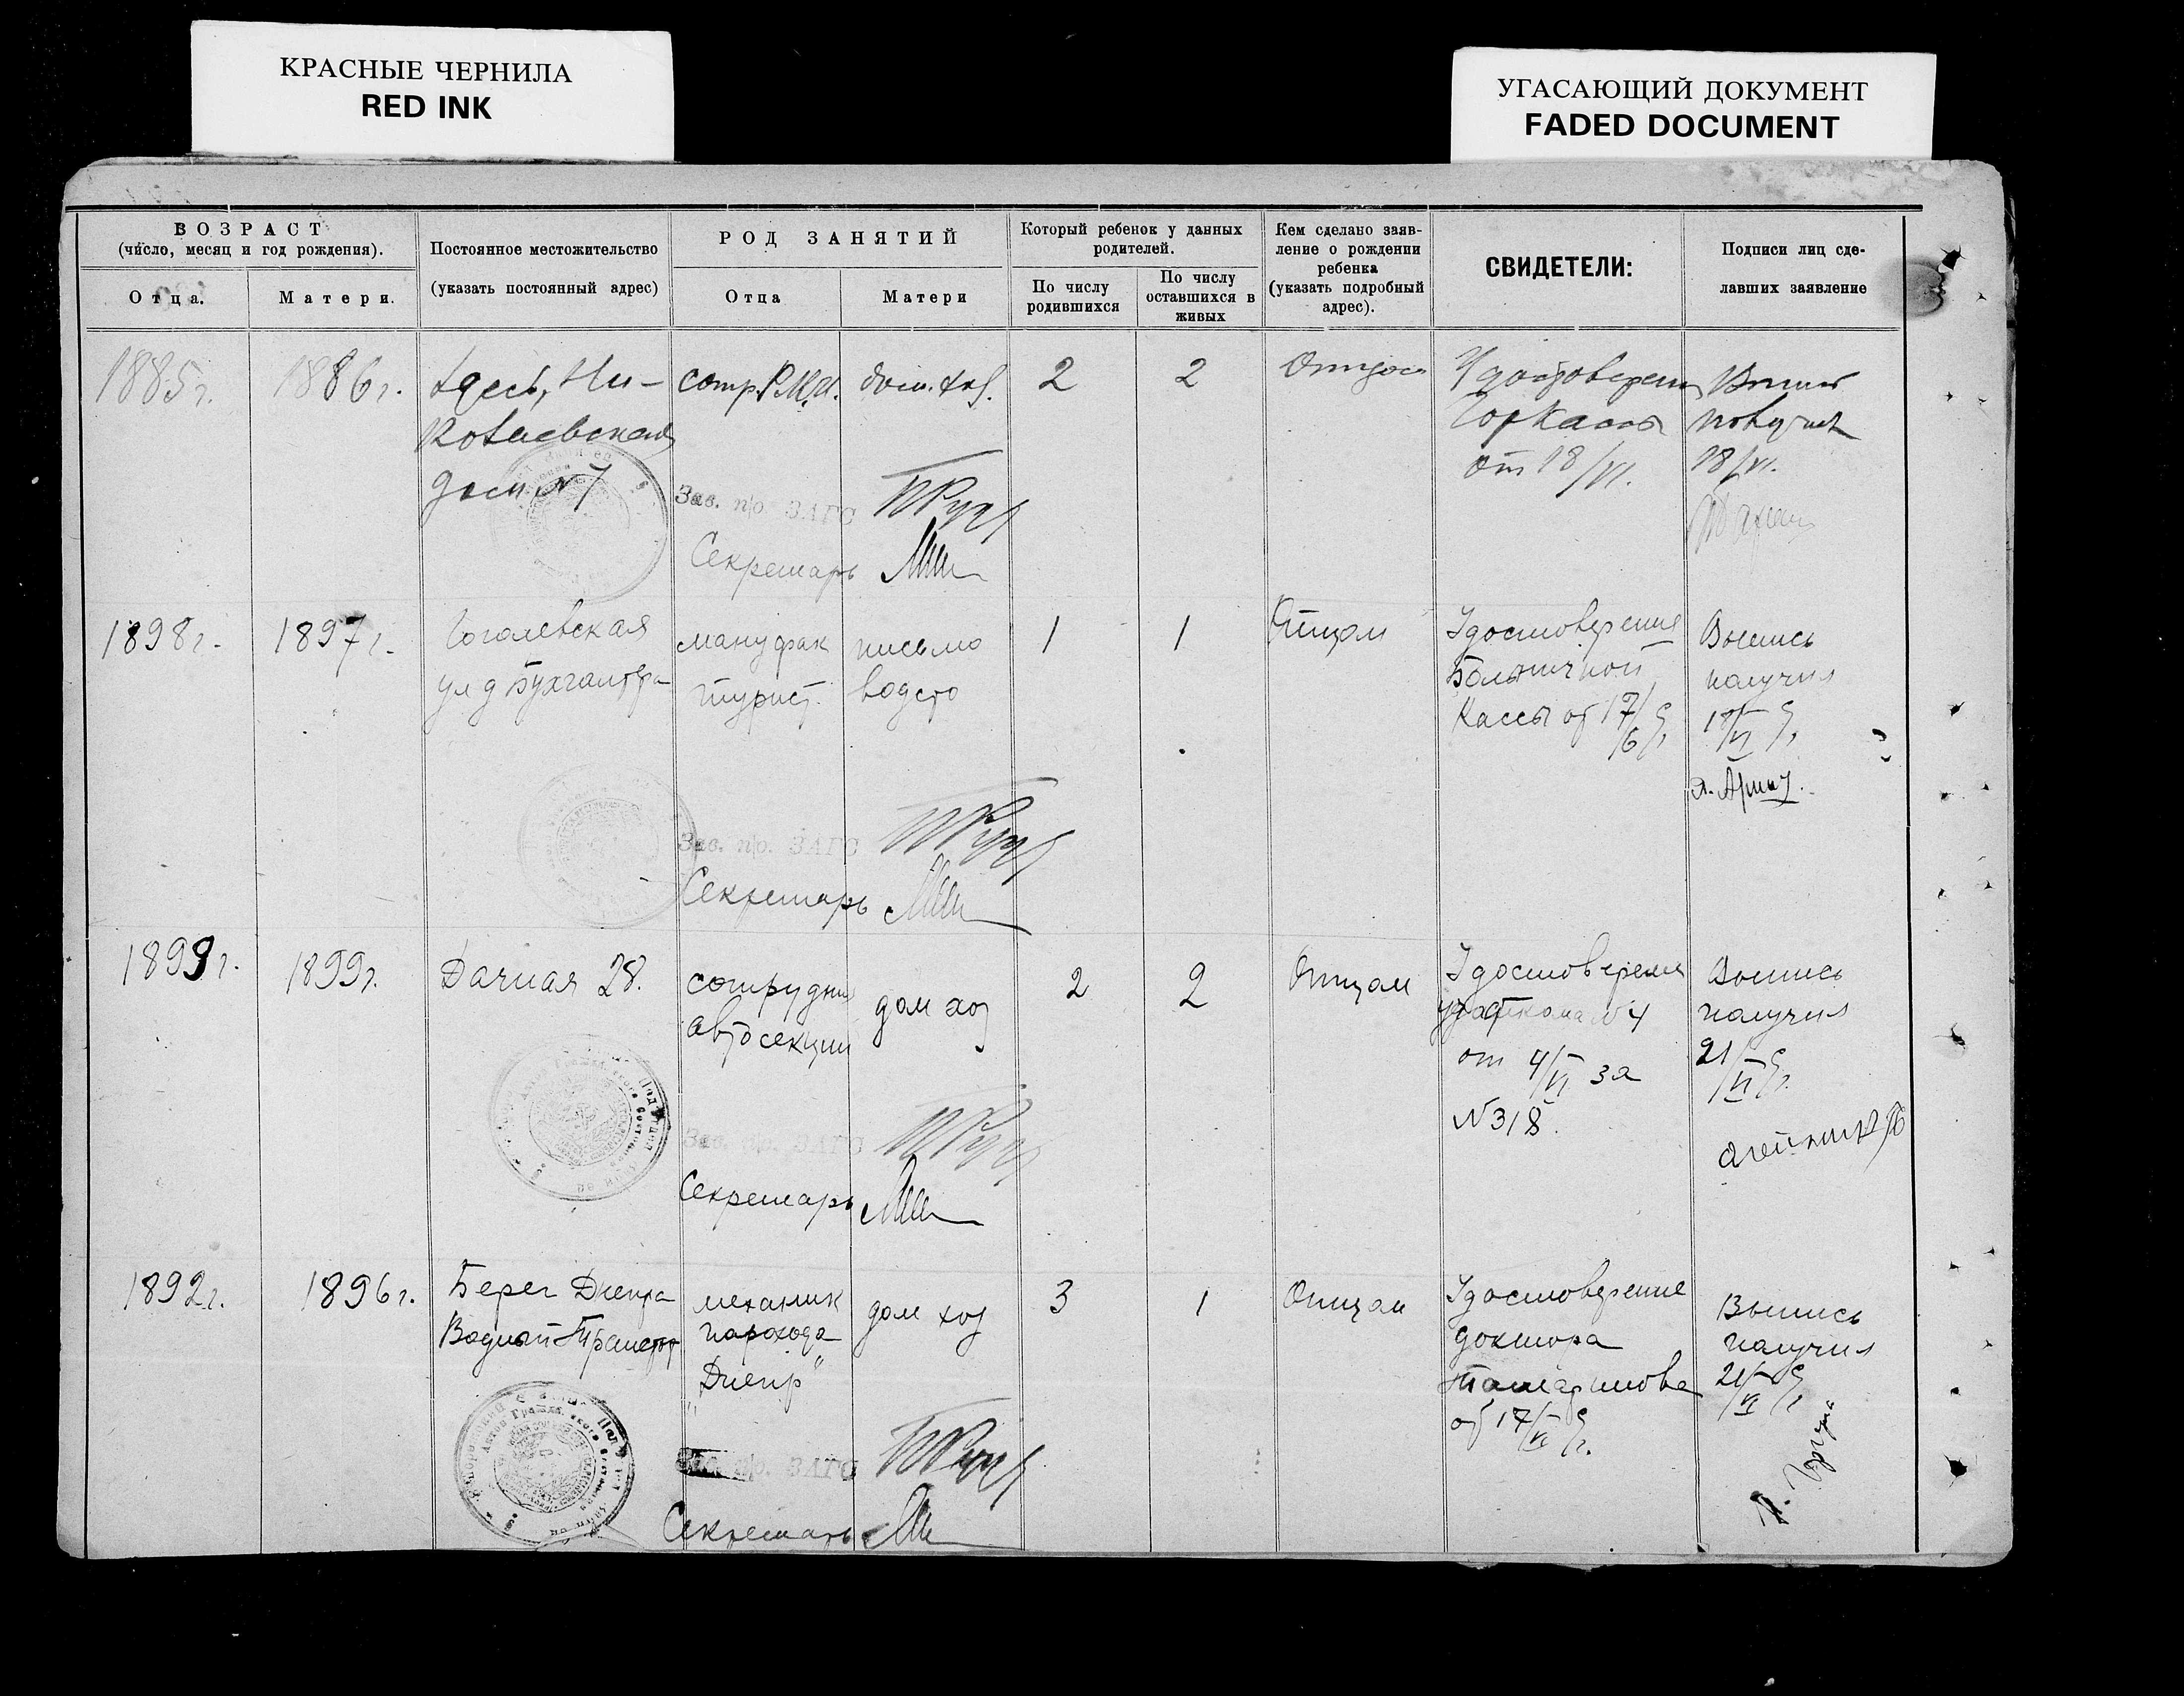 КРАСНЫЕ ЧЕРНИЛА
RED INK
УГАСАЮЩИЙ ДОКУМЕНТ
FADED DOCUMENT
ВОЗРАСТ
(число, месяц и год рождения).
Отца.
Матери.
Постоянное местожительство
(указать постоянный адрес)
РОД ЗАНЯТИЙ
Отца
Матери
Который ребенок у данных
родителей.
По числу
родившихся
По числу
оставшихся в
живых
Кем сделано заяв-
ление о рождении
ребенка
(указать подробный
адрес).
СВИДЕТЕЛИ:
Подписи лиц сде-
лавших заявление
1885г.
1886г.
Здесь,
дом №7
сотр.
дом. хоз.
2
2
Отцом
Удостоверен
Горкассы
от 18/VI.
Выпись
получил
18/VI.
Зав. п/о. ЗАГС
Секретарь
1898г.
1897г.
Гоголевская
ул д Бухгалтера
мануфак
турист.
письмо
водство
1
1
Отцом
Удостоверение
Больничной
Кассы от 17/6
Выпись
получил
18/VI
Зав. п/о. ЗАГС
Секретарь
1899г.
1899г.
Дачная 28.
сотрудник
автосекции
дом хоз
2
2
Отцом
Удостоверения
№4
от 4/VI за
№318.
Выпись
получил
21/VI
Зав. п/о. ЗАГС
Секретарь
1892г.
1896г.
Берег Днепра
Водный Транспорт
механик
парохода
„Днепр"
дом хоз
3
1
Отцом
Удостоверение
доктора
от 17/VI
Выпись
получил
21/VI
п/о. ЗАГС
Секретарь